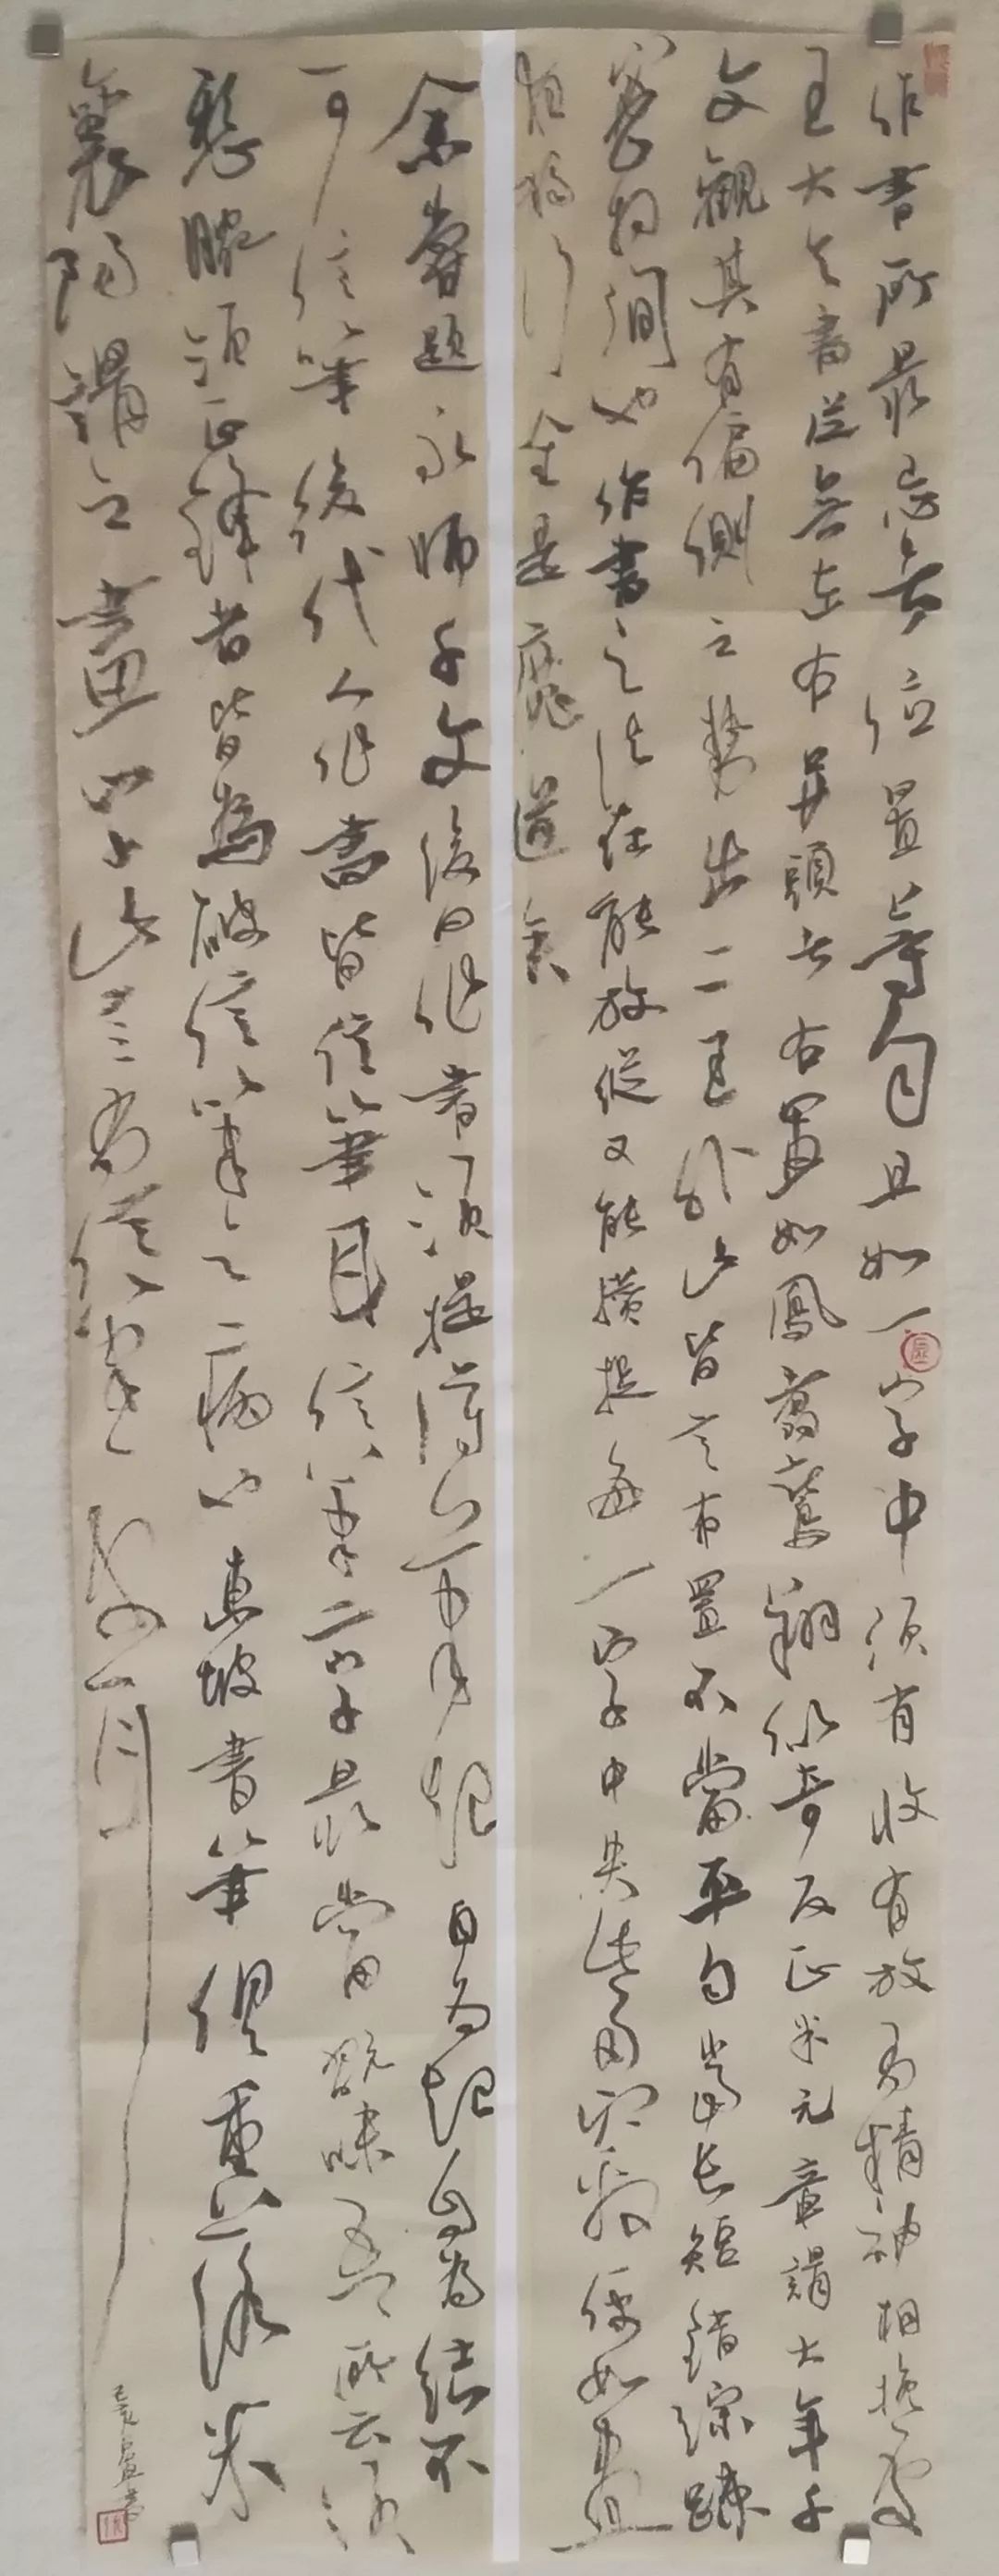 作書所最忌者位置等勻且如一字中須有收有放有精神相挽處
王大令書從無左右并頭者右軍如鳳翥鸞翔似奇反正米元章謂大年千
文觀其有偏側之勢出二王外此皆言布置不當平勻當長短錯綜疎
密相間也作書之法在能放縱又能攢捉每一字中失此兩竅便如晝
夜獨行全是魔道矣
余嘗題永師千文後曰作書須提得筆起自為起自為結不
可信筆後代人作書皆信筆耳信筆二字最當玩味吾所云須
懸腕須正鋒者皆為破信筆之病也東坡書筆俱重落米
襄陽謂之畫字此言有信筆